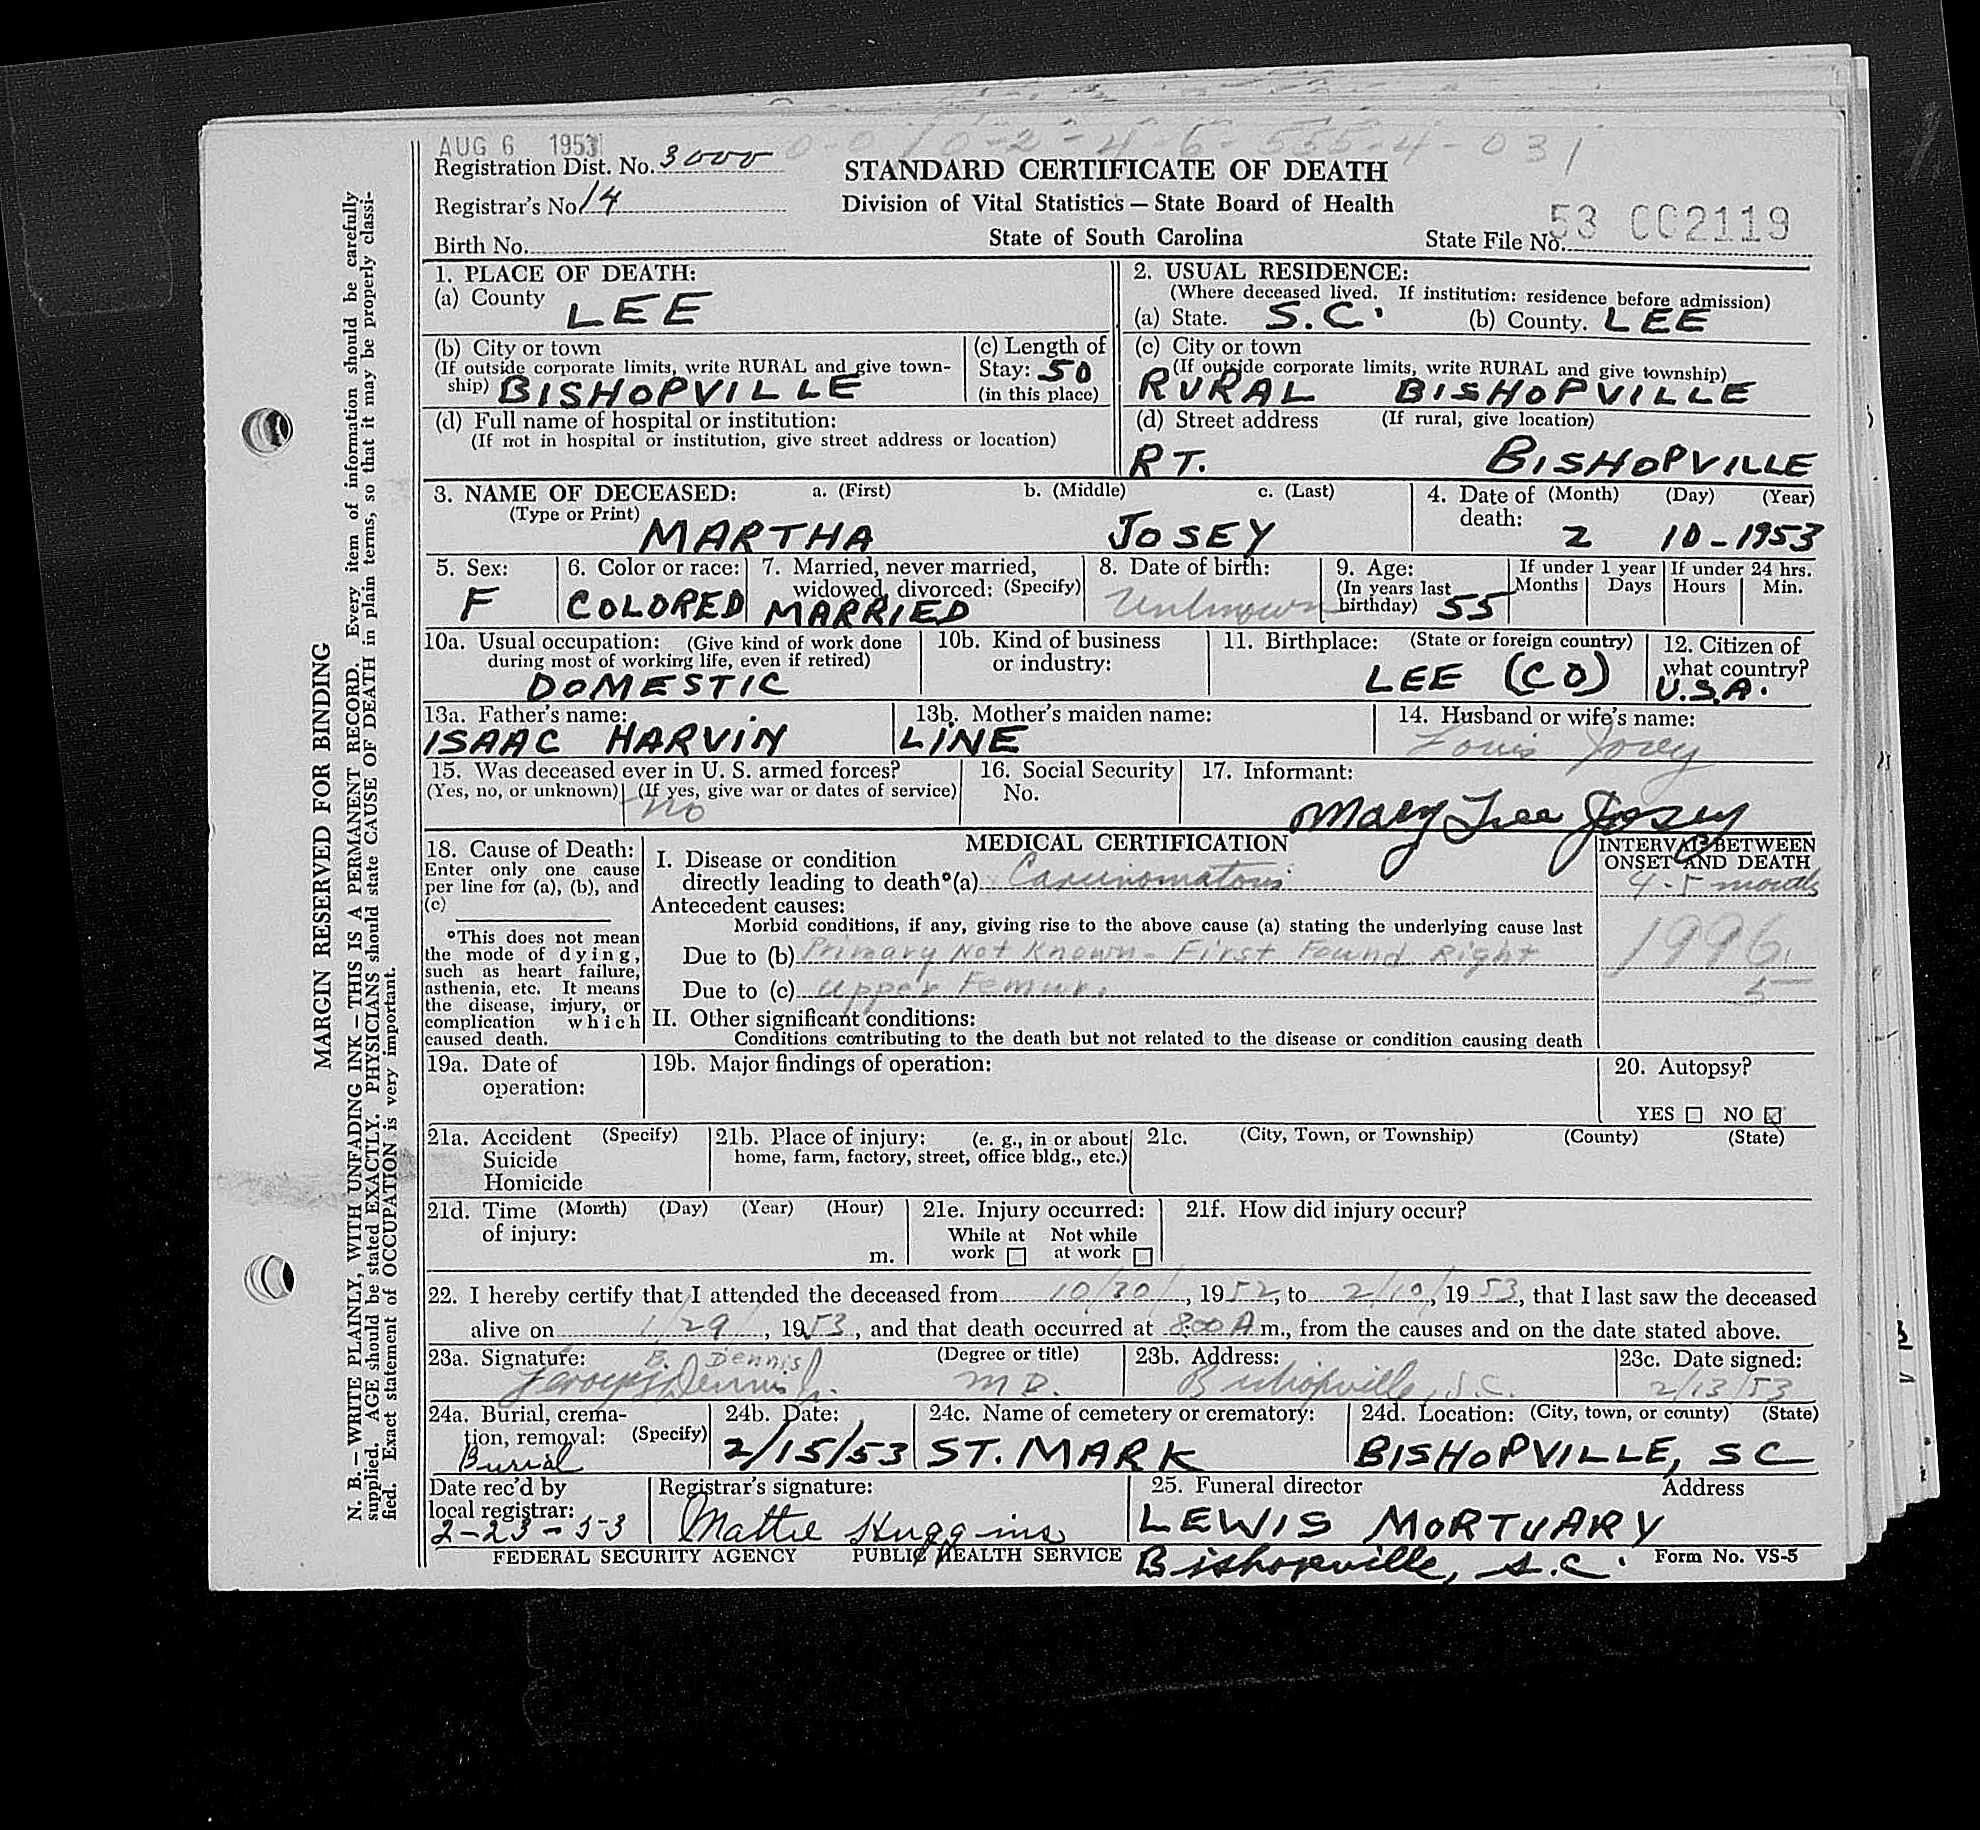 AUG 6 1953
0-0 10-2-4-6-555-4-031
Registration Dist. No. 3000
STANDARD CERTIFICATE OF DEATH
Registrar's No. 14
Division of Vital Statistics — State Board of Health
Birth No.
State of South Carolina
State File No. 53 002119
1. PLACE OF DEATH:
(a) County LEE
2. USUAL RESIDENCE:
(Where deceased lived. If institution: residence before admission)
(a) State. S.C. (b) County. LEE
(b) City or town
(If outside corporate limits, write RURAL and give town-
ship) BISHOPVILLE
(c) Length of
Stay: 50
(in this place)
(c) City or town
(If outside corporate limits, write RURAL and give township)
RURAL BISHOPVILLE
(d) Full name of hospital or institution:
(If not in hospital or institution, give street address or location)
(d) Street address (If rural, give location)
RT. BISHOPVILLE
3. NAME OF DECEASED: a. (First) b. (Middle) c. (Last)
(Type or Print) MARTHA JOSEY
4. Date of (Month) (Day) (Year)
death: 2 10-1953
5. Sex:
F
6. Color or race:
COLORED
7. Married, never married,
widowed, divorced: (Specify)
MARRIED
8. Date of birth:
Unknown
9. Age:
(In years last
birthday) 55
If under 1 year
Months Days
If under 24 hrs.
Hours Min.
10a. Usual occupation: (Give kind of work done
during most of working life, even if retired)
DOMESTIC
10b. Kind of business
or industry:
11. Birthplace: (State or foreign country)
LEE (CO)
12. Citizen of
what country?
U.S.A.
13a. Father's name:
ISAAC HARVIN
13b. Mother's maiden name:
LINE
14. Husband or wife's name:
Louis Josey
15. Was deceased ever in U. S. armed forces?
(Yes, no, or unknown) (If yes, give war or dates of service)
no
16. Social Security
No.
17. Informant:
Mary Lee Josey
18. Cause of Death:
Enter only one cause
per line for (a), (b), and
(c)
*This does not mean
the mode of dying,
such as heart failure,
asthenia, etc. It means
the disease, injury, or
complication which
caused death.
MEDICAL CERTIFICATION
I. Disease or condition
directly leading to death*(a) Carcinomatosis
Antecedent causes:
Morbid conditions, if any, giving rise to the above cause (a) stating the underlying cause last
Due to (b) Primary Not Known - First Found Right
Due to (c) Upper Femur.
II. Other significant conditions:
Conditions contributing to the death but not related to the disease or condition causing death
INTERVAL BETWEEN
ONSET AND DEATH
4-5 months
1996
5
19a. Date of
operation:
19b. Major findings of operation:
20. Autopsy?
YES NO
21a. Accident (Specify)
Suicide
Homicide
21b. Place of injury: (e. g., in or about
home, farm, factory, street, office bldg., etc.)
21c. (City, Town, or Township) (County) (State)
21d. Time (Month) (Day) (Year) (Hour)
of injury:
m.
21e. Injury occurred:
While at Not while
work at work
21f. How did injury occur?
22. I hereby certify that I attended the deceased from 10/30/, 1952, to 2/10/, 1953, that I last saw the deceased
alive on 1/29/, 1953, and that death occurred at 8:00 A m., from the causes and on the date stated above.
23a. Signature: B. Dennis (Degree or title)
Dennis Jr. M D.
23b. Address:
Bishopville, S.C.
23c. Date signed:
2/13/53
24a. Burial, crema-
tion, removal: (Specify)
Burial
24b. Date:
2/15/53
24c. Name of cemetery or crematory:
ST. MARK
24d. Location: (City, town, or county) (State)
BISHOPVILLE, SC
Date rec'd by
local registrar:
2-23-53
Registrar's signature:
Mattie Huggins
25. Funeral director Address
LEWIS MORTUARY
Bishopville, S.C.
FEDERAL SECURITY AGENCY PUBLIC HEALTH SERVICE
Form No. VS-5
MARGIN RESERVED FOR BINDING
N. B. — WRITE PLAINLY, WITH UNFADING INK — THIS IS A PERMANENT RECORD. Every item of information should be carefully
supplied. AGE should be stated EXACTLY. PHYSICIANS should state CAUSE OF DEATH in plain terms, so that it may be properly classi-
fied. Exact statement of OCCUPATION is very important.